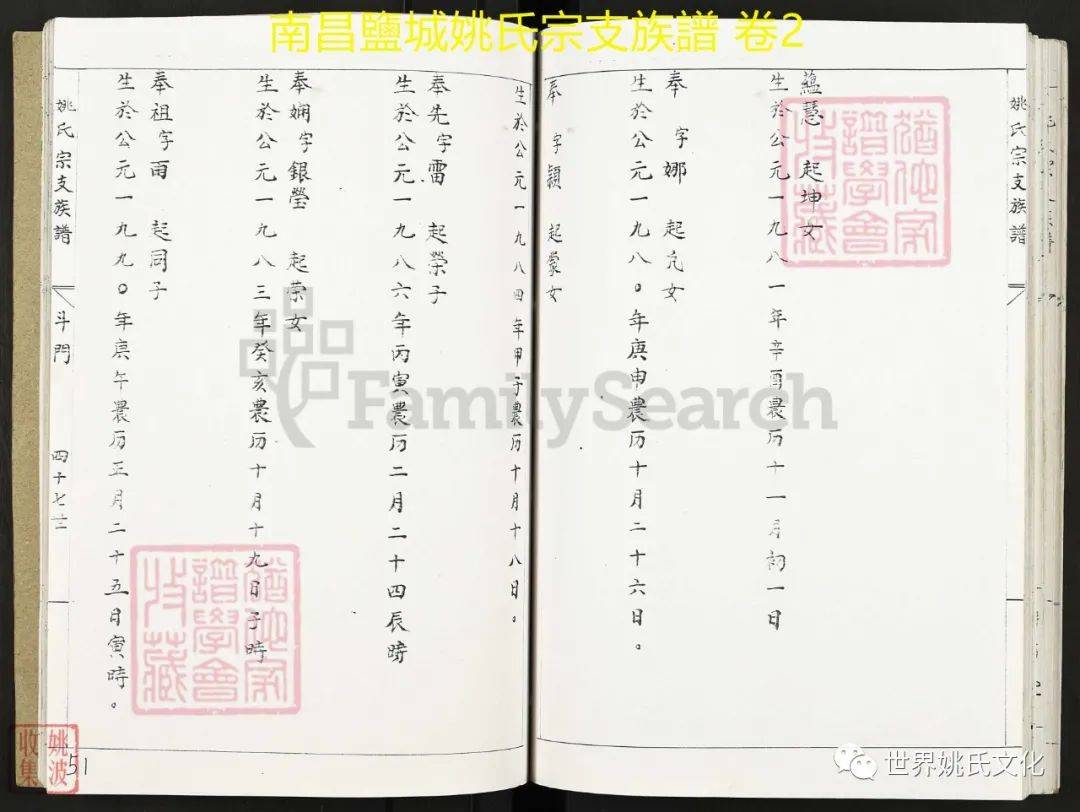 南昌鹽城姚氏宗支族譜 卷2
姚氏宗支族譜
蘊慧 起坤女
生於公元一九八一年辛酉農历十一月初一日
奉 字娜 起元女
生於公元一九八〇年庚申農历十月二十六日。
奉 字穎 起蒙女
生於公元一九八四年甲子農历十月十八日。
奉先字雷 起榮子
生於公元一九八六年丙寅農历二月二十四辰時
奉嫻字銀瑩 起荣女
生於公元一九八三年癸亥農历十月十九日子時
奉祖字雨 起同子
生於公元一九九〇年庚午農历正月二十五日寅時。
姚氏宗支族譜
斗門
四十七
51
姚波收集
猶他家譜學會收藏
猶他家譜學會收藏
FamilySearch
世界姚氏文化